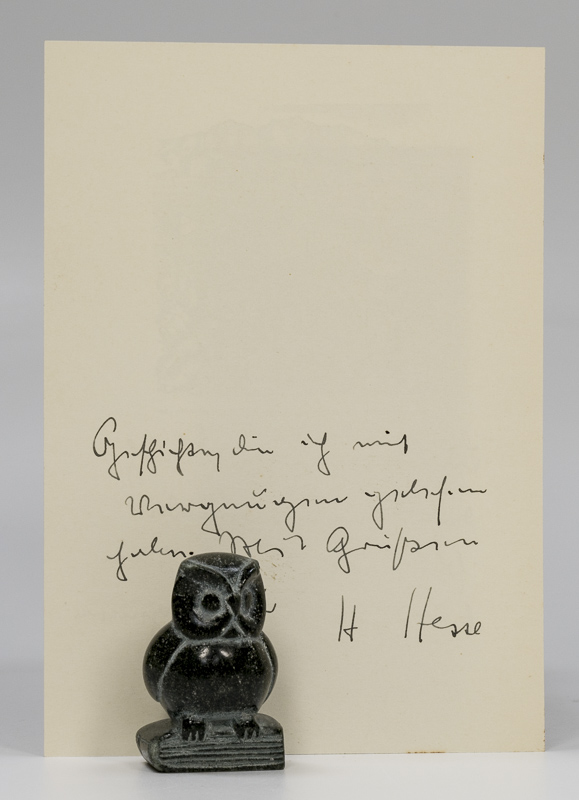 Geschichten, die ich mit
Vergnügen gelesen
habe. Mit Grüssen
H Hesse